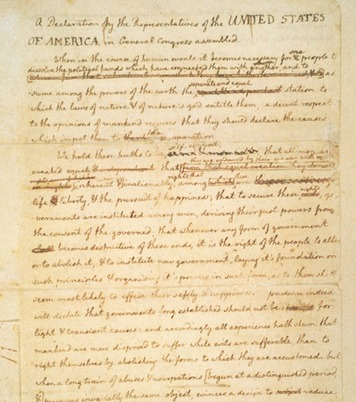 A Declaration by the Representatives of the UNITED STATES
OF AMERICA, in General Congress assembled.
When in the course of human events it becomes necessary for one people to
dissolve the political bands which have connected them with another, and to
assume among the powers of the earth the separate and equal station to
which the laws of nature & of nature's god entitle them, a decent respect
to the opinions of mankind requires that they should declare the causes
which impel them to the separation.
We hold these truths to be self-evident that all men are
created equal
inherent & inalienable, among
life, & liberty, & the pursuit of happiness; that to secure these rights, go
vernments are instituted among men, deriving their just powers from
the consent of the governed; that whenever any form of government
becomes destructive of these ends, it is the right of the people to alter
or to abolish it, & to institute new government, laying it's foundation on
such principles & organising it's powers in such form, as to them shall
seem most likely to effect their safety & happiness. prudence indeed
will dictate that governments long established should not be changed for
light & transient causes: and accordingly all experience hath shewn that
mankind are more disposed to suffer while evils are sufferable, than to
right themselves by abolishing the forms to which they are accustomed. but
when a long train of abuses & usurpations [begun at a distinguished period,
& pursuing invariably the same object, evinces a design to reduce